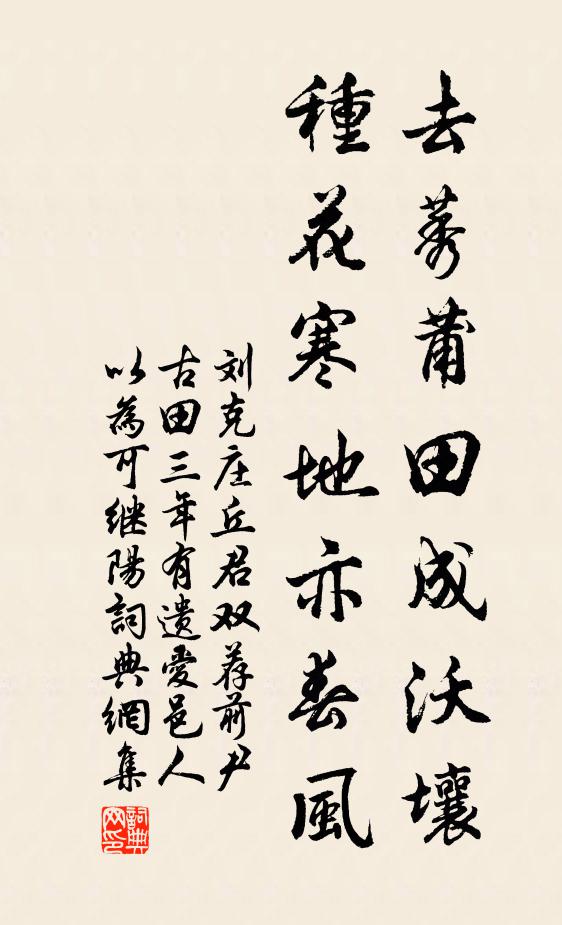 去莠莆田成沃壤
種花寒地亦春風
刘克庄丘君双荐前尹
古田三年有遗愛邑人
以為可继陽詞典網集
詞典网印